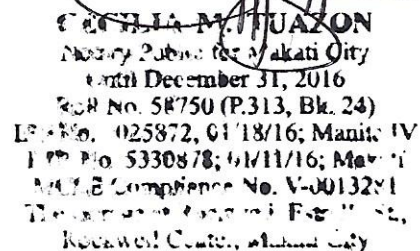 CECILIA M. TUAZON
Notary Public for Makati City
Until December 31, 2016
Roll No. 58750 (P.313, Bk. 24)
No. 025872, 01/18/16; Manila IV
No. 5330878; 01/11/16;
MCLE Compliance No. V-0013281
Rockwell Center, Makati City